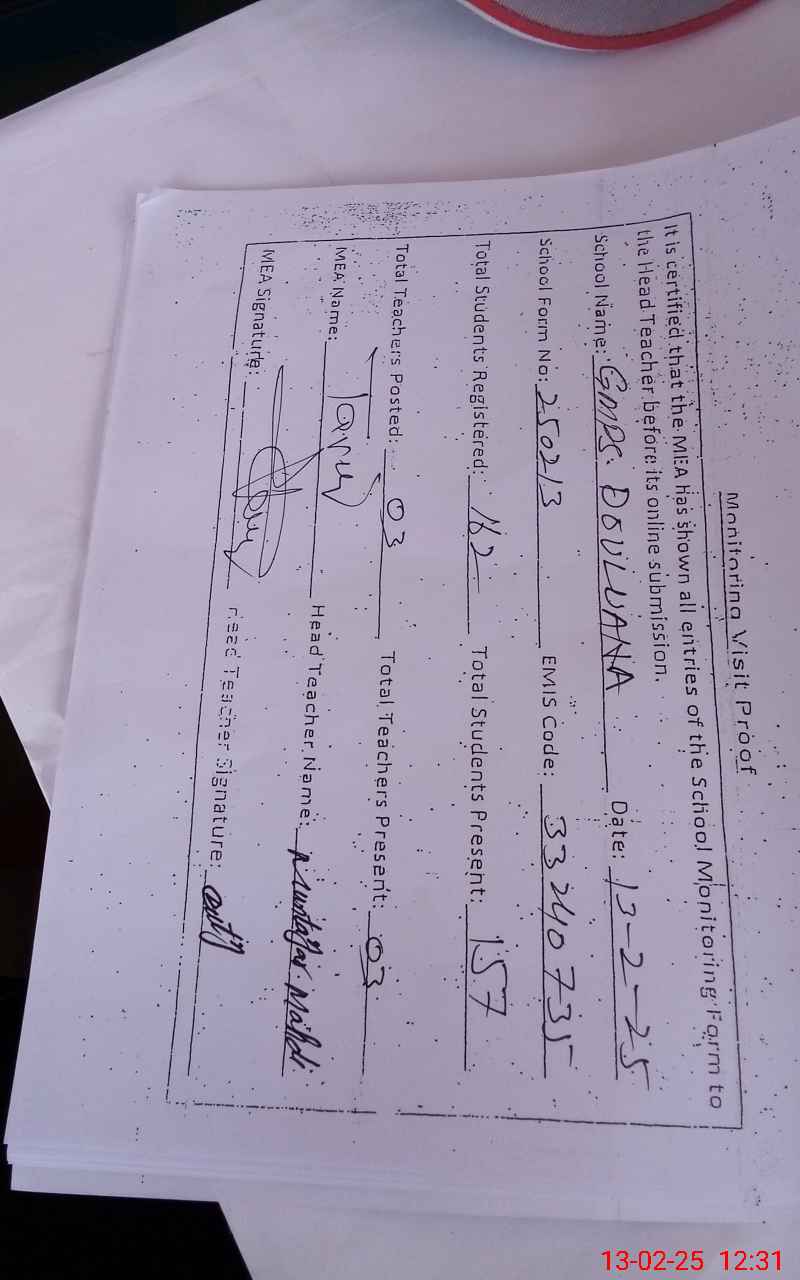 Monitoring Visit Proof
It is certified that the MEA has shown all entries of the School Monitoring Form to
the Head Teacher before its online submission.
School Name: GMPS. DOULUANA Date: 13-2-25
School Form No: 250213 EMIS Code: 33240735
Total Students Registered: 162 Total Students Present: 157
Total Teachers Posted: 03 Total Teachers Present: 03
MEA Name: Tariq Head Teacher Name: Muntazar Mahdi
MEA Signature: Head Teacher Signature:
13-02-25 12:31